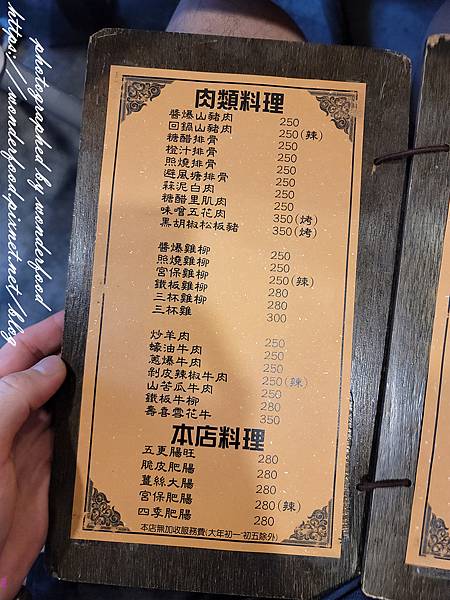 肉類料理
醬爆山豬肉 250
回鍋山豬肉 250(辣)
糖醋排骨 250
橙汁排骨 250
照燒排骨 250
避風塘排骨 250
蒜泥白肉 250
糖醋里肌肉 250
味噌五花肉 350(烤)
黑胡椒松板豬 350(烤)
醬爆雞柳 250
照燒雞柳 250
宮保雞柳 250(辣)
鐵板雞柳 280
三杯雞柳 280
三杯雞 300
炒羊肉 250
蠔油牛肉 250
蔥爆牛肉 250
剝皮辣椒牛肉 250(辣)
山苦瓜牛肉 250
鐵板牛柳 280
壽喜雪花牛 350
本店料理
五更腸旺 280
脆皮肥腸 280
薑絲大腸 280
宮保肥腸 280(辣)
四季肥腸 280
本店無加收服務費(大年初一~初五除外)
photographed by wonderfood
https://wonderfood.pixnet.net/blog